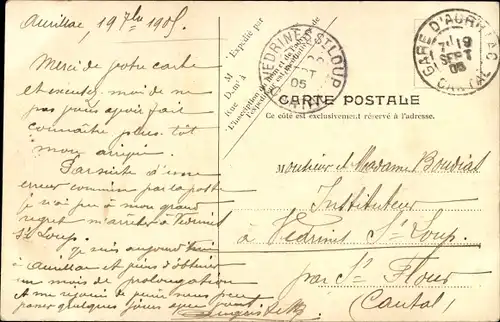 Aurillac, 19 7bre 1905
Merci de votre carte
et excusez moi de ne
pas avoir fait
connaître plus tôt
mon arrivée.
Par suite d'une
erreur commise par la poste
je n'ai pu à mon grand
regret m'arrêter à Védrines
St Loup.
Je suis aujourd'hui
à Aurillac et viens d'obtenir
un mois de prolongation
et me réjouis de
passer quelques jours
M
Expédié par
Dmt à
Rue
CARTE POSTALE
Ce côté est exclusivement réservé à l'adresse.
Monsieur et Madame Boudiat
Instituteur
à Védrines St Loup.
par St Flour
Cantal
VEDRINES ST LOUP
05
GARE D'AURILLAC
19
SEPT
05
CANTAL